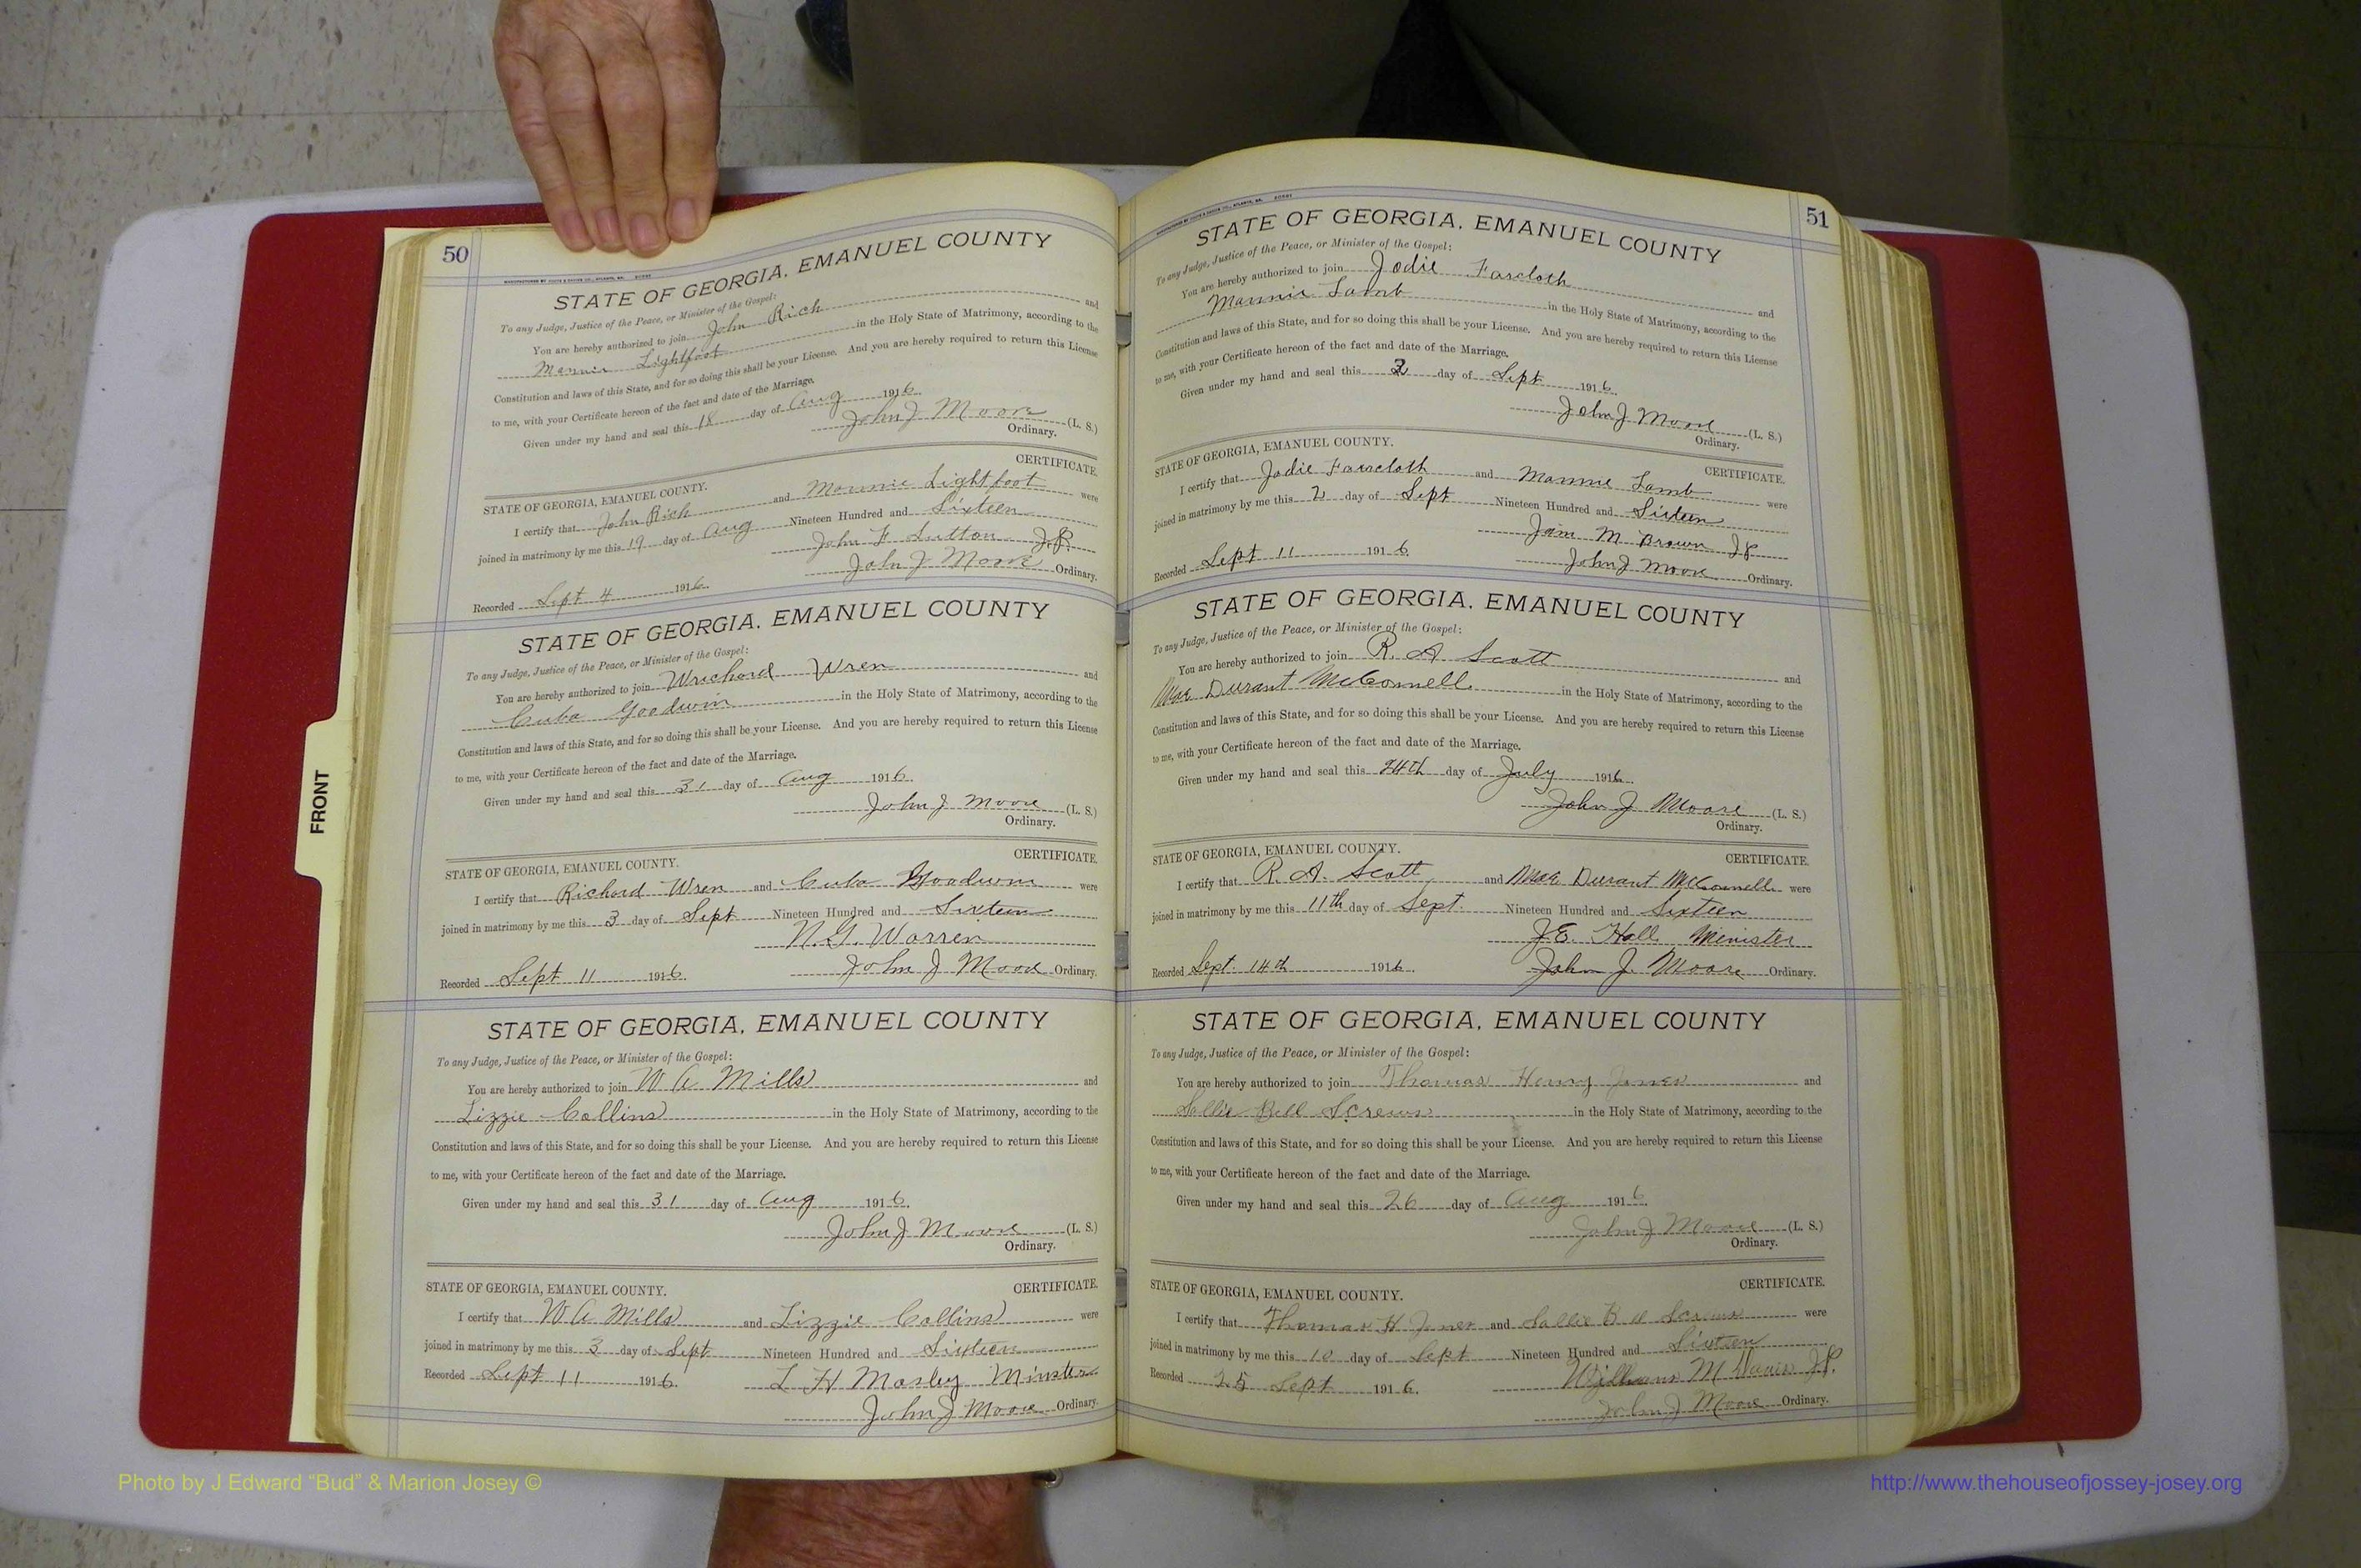 50
STATE OF GEORGIA, EMANUEL COUNTY
To any Judge, Justice of the Peace, or Minister of the Gospel:
You are hereby authorized to join John Rich and
Mannie Lightfoot in the Holy State of Matrimony, according to the
Constitution and laws of this State, and for so doing this shall be your License. And you are hereby required to return this License
to me, with your Certificate hereon of the fact and date of the Marriage.
Given under my hand and seal this 18 day of Aug 1916
John J Moore (L. S.)
Ordinary.
CERTIFICATE.
STATE OF GEORGIA, EMANUEL COUNTY.
I certify that John Rich and Mannie Lightfoot were
joined in matrimony by me this 19 day of Aug Nineteen Hundred and Sixteen
John F Sutton J.P.
Recorded Sept 4 1916 John J Moore Ordinary.
STATE OF GEORGIA, EMANUEL COUNTY
To any Judge, Justice of the Peace, or Minister of the Gospel:
You are hereby authorized to join Wrichard Wren and
Cuba Goodwin in the Holy State of Matrimony, according to the
Constitution and laws of this State, and for so doing this shall be your License. And you are hereby required to return this License
to me, with your Certificate hereon of the fact and date of the Marriage.
Given under my hand and seal this 31 day of Aug 1916.
John J Moore (L. S.)
Ordinary.
CERTIFICATE.
STATE OF GEORGIA, EMANUEL COUNTY.
I certify that Richard Wren and Cuba Goodwin were
joined in matrimony by me this 3 day of Sept Nineteen Hundred and Sixteen
N. G. Warren
Recorded Sept 11 1916. John J Moore Ordinary.
STATE OF GEORGIA, EMANUEL COUNTY
To any Judge, Justice of the Peace, or Minister of the Gospel:
You are hereby authorized to join W A Mills and
Lizzie Collins in the Holy State of Matrimony, according to the
Constitution and laws of this State, and for so doing this shall be your License. And you are hereby required to return this License
to me, with your Certificate hereon of the fact and date of the Marriage.
Given under my hand and seal this 31 day of Aug 1916.
John J Moore (L. S.)
Ordinary.
STATE OF GEORGIA, EMANUEL COUNTY. CERTIFICATE.
I certify that W A Mills and Lizzie Collins were
joined in matrimony by me this 3 day of Sept Nineteen Hundred and Sixteen
Recorded Sept 11 1916. L H Mosley Minster
John J Moore Ordinary.
51
STATE OF GEORGIA, EMANUEL COUNTY
To any Judge, Justice of the Peace, or Minister of the Gospel:
You are hereby authorized to join Jodie Faircloth and
Mannie Lamb in the Holy State of Matrimony, according to the
Constitution and laws of this State, and for so doing this shall be your License. And you are hereby required to return this License
to me, with your Certificate hereon of the fact and date of the Marriage.
Given under my hand and seal this 2 day of Sept 1916.
John J Moore (L. S.)
Ordinary.
STATE OF GEORGIA, EMANUEL COUNTY. CERTIFICATE.
I certify that Jodie Faircloth and Mannie Lamb were
joined in matrimony by me this 2 day of Sept Nineteen Hundred and Sixteen
Jam M Brown JP
Recorded Sept 11 1916. John J Moore Ordinary.
STATE OF GEORGIA, EMANUEL COUNTY
To any Judge, Justice of the Peace, or Minister of the Gospel:
You are hereby authorized to join R. A Scott and
Mae Durant McConnell in the Holy State of Matrimony, according to the
Constitution and laws of this State, and for so doing this shall be your License. And you are hereby required to return this License
to me, with your Certificate hereon of the fact and date of the Marriage.
Given under my hand and seal this 24th day of July 1916.
John J Moore (L. S.)
Ordinary.
STATE OF GEORGIA, EMANUEL COUNTY. CERTIFICATE.
I certify that R. A. Scott and Mae Durant McConnell were
joined in matrimony by me this 11th day of Sept. Nineteen Hundred and Sixteen
J. E. Hall Minister
Recorded Sept. 14th 1916. John J. Moore Ordinary.
STATE OF GEORGIA, EMANUEL COUNTY
To any Judge, Justice of the Peace, or Minister of the Gospel:
You are hereby authorized to join Thomas Henry and
Sallie Bell Screws in the Holy State of Matrimony, according to the
Constitution and laws of this State, and for so doing this shall be your License. And you are hereby required to return this License
to me, with your Certificate hereon of the fact and date of the Marriage.
Given under my hand and seal this 26 day of Aug 1916.
John J Moore (L. S.)
Ordinary.
STATE OF GEORGIA, EMANUEL COUNTY. CERTIFICATE.
I certify that Thomas H and Sallie Bell Screws were
joined in matrimony by me this 10 day of Sept Nineteen Hundred and Sixteen
Recorded 25 Sept 1916. William M Davis J.P.
John J Moore Ordinary.
FRONT
Photo by J Edward “Bud” & Marion Josey ©
http://www.thehouseofjossey-josey.org